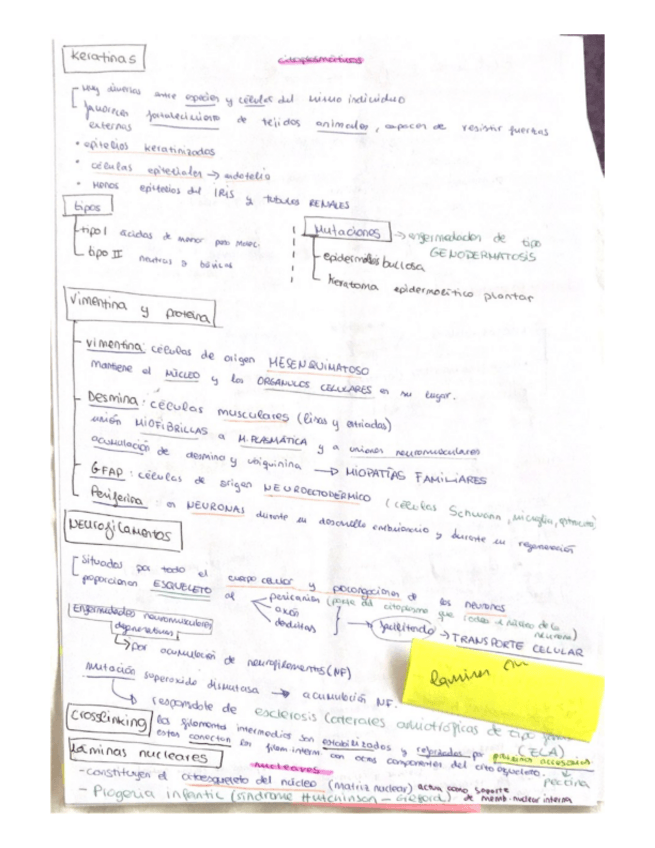 Keratinas
citoplasmáticos
Muy diversas entre especies y células del mismo individuo
favorecen fortalecimiento de tejidos animales, capaces de resistir fuerzas
externas
• epitelios keratinizados
• células epiteliales → endotelio
• Menos epitelios del IRIS y tubulos RENALES
tipos
tipo I acidas de menor peso molec.
tipo II neutras o básicas
Mutaciones → enfermedades de tipo
GENODERMATOSIS
epidermolisis bullosa
keratoma epidermolitico plantar
Vimentina y proteina
vimentina: células de origen MESENQUIMATOSO
mantiene el NÚCLEO y los ORGANULOS CELULARES en su lugar.
Desmina: células musculares (lisas y estriadas)
unión MIOFIBRILLAS a M.PLASMÁTICA y a uniones neuromusculares
acumulación de desmina y ubiquinina → MIOPATÍAS FAMILIARES
GFAP: células de origen NEUROECTODERMICO (células Schwann, microglia,
Periferina: en NEURONAS durante su desarrollo embrionario y durante su regeneración
Neurofilamentos
Situados por todo el cuerpo celular y prolongaciones de las neuronas
proporcionan ESQUELETO al
pericarion (parte del citoplasma que rodea el núcleo de la neurona)
axón
dendritas
facilitando → TRANSPORTE CELULAR
Enfermedades neuromusculares
degenerativas
por acumulación de neurofilamentos (NF)
mutación superoxido dismutasa → acumulación NF.
responsable de esclerosis laterales amiotróficas de tipo
(ELA)
Crosslinking
los filamentos intermedios son estabilizados y reforzados por proteína accesoria
estas conectan los filam.interm con otros componentes del citoesqueleto.
Láminas nucleares
nucleares
- constituyen el citoesqueleto del núcleo (matriz nuclear) actua como soporte
de memb. nuclear interna
- Progeria infantil (síndrome Hutchinson – Gilford)